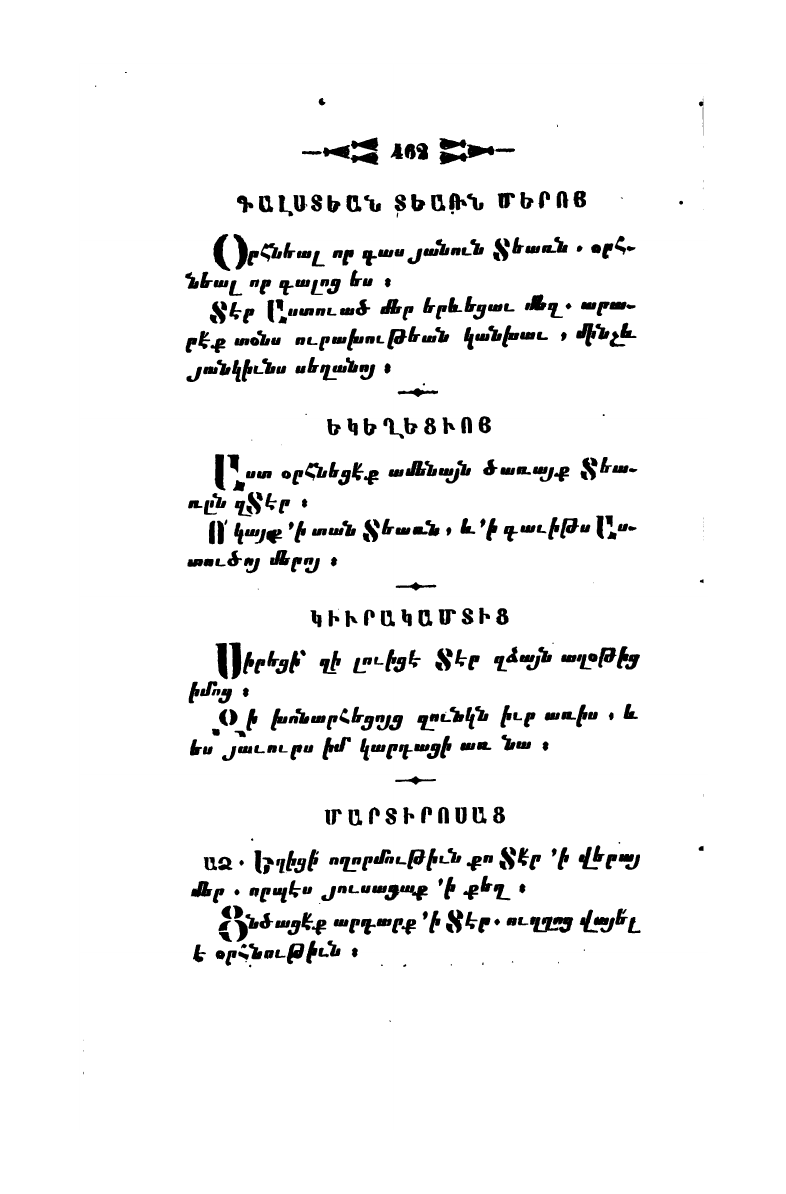 462
ԳԱԼՍՏԵԱՆ ՏԵԱՌՆ ՄԵՐՈՅ
Օրհնեալ որ գաս յանուն Տեառն. օրհ-
նեալ որ գալոց ես ։
Տէր Աստուած մեր երևեցաւ մեզ. արա-
րէք տօնս ուրախութեան կանխաւ , մինչև
յանկիւնս սեղանոյ ։
ԵԿԵՂԵՑԻՈՅ
Աստ օրհնեցէք ամենայն ծառայք Տեա-
ռըն զՏէր ։
Ո՛ կայք ՚ի տան Տեառն, և ՚ի գաւիթս Աս-
տուծոյ մերոյ ։
ԿԻՒՐԱԿԱՄՏԻՑ
Սիրեցի՝ զի լուիցէ Տէր զձայն աղօթից
իմոց ։
Զի խոնարհեցոյց զունկն իւր առիս , և
ես յաւուրս իմ կարդացի առ նա ։
ՄԱՐՏԻՐՈՍԱՑ
ԱՁ. Եղիցի՛ ողորմութիւն քո Տէր ՚ի վերայ
մեր . որպէս յուսացաք ՚ի քեզ ։
Ցնծացէք արդարք ՚ի Տէր. ուղղոց վայել
է օրհնութիւն ։